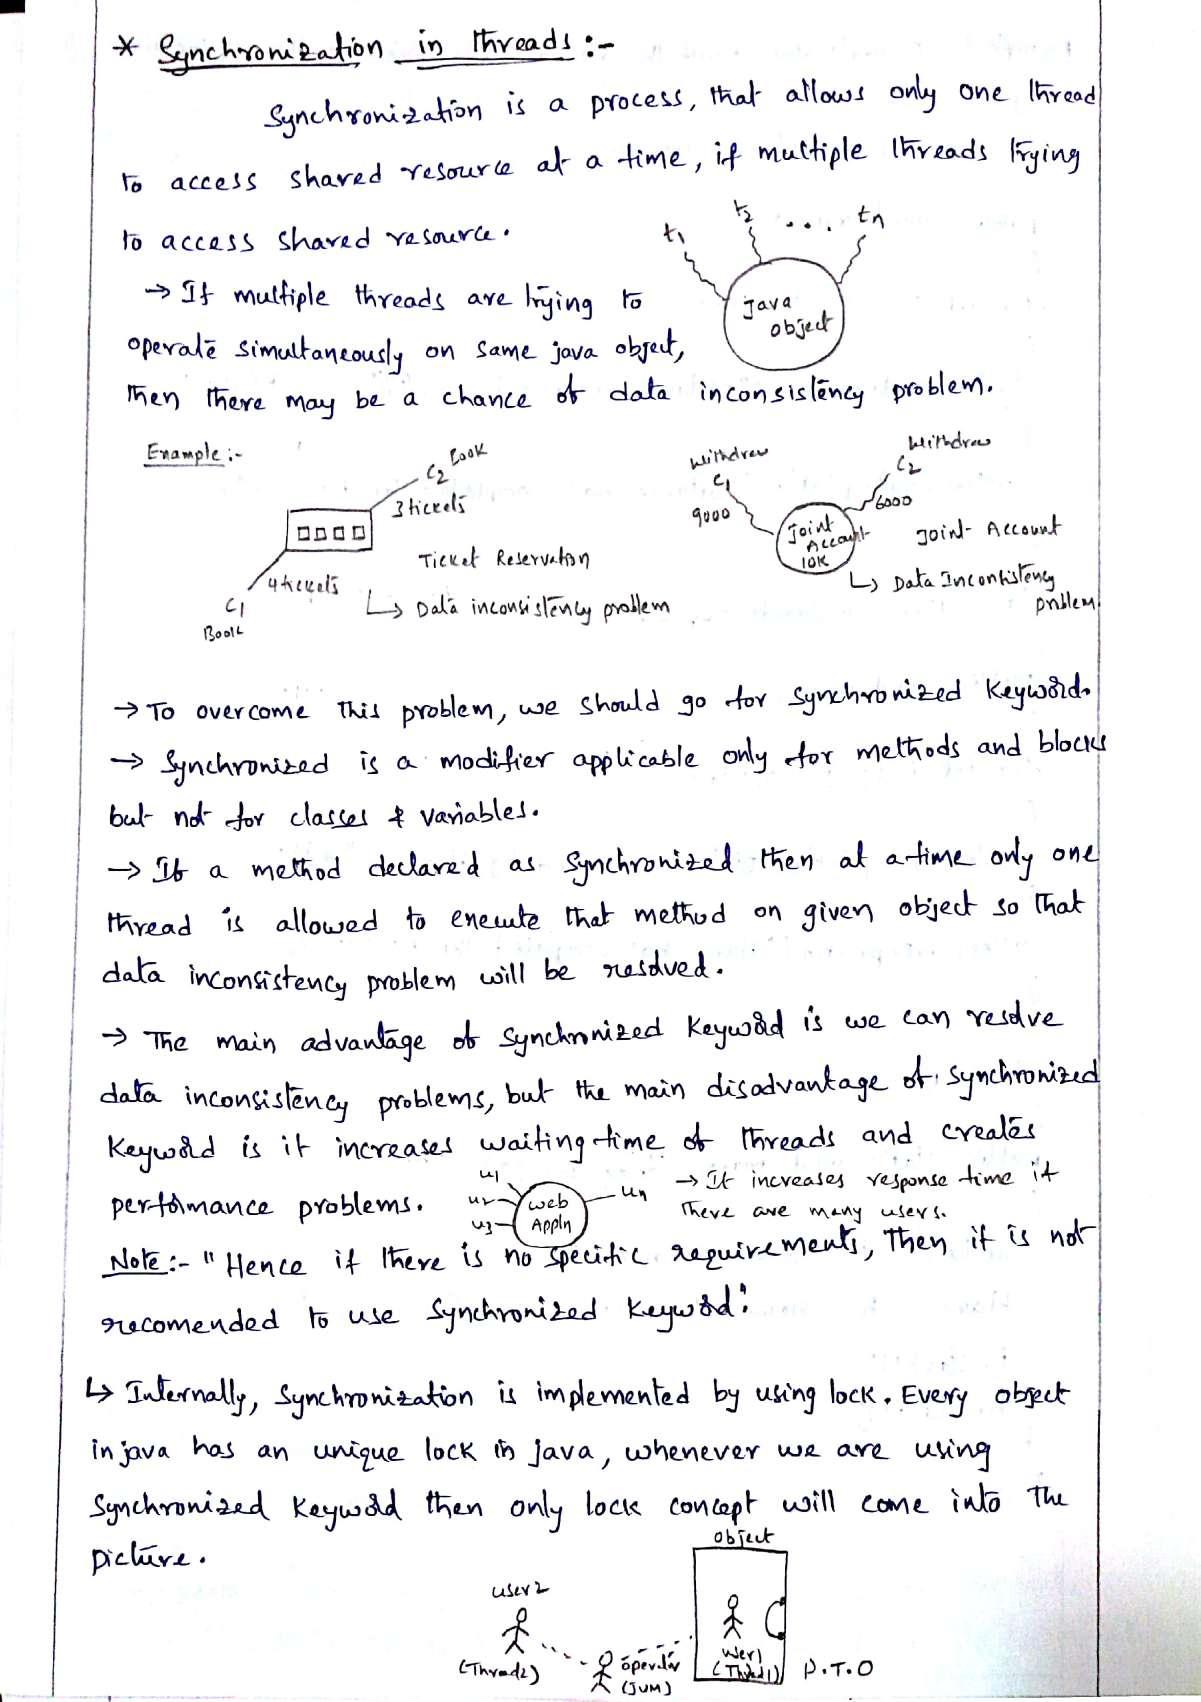 * Synchronization in threads :-
Synchronization is a process, that allows only one thread
to access shared resource at a time, if multiple threads trying
to access shared resource.
t1 t2 .... tn
java
object
→ If multiple threads are trying to
operate simultaneously on same java object,
then there may be a chance of data inconsistency problem.
Example :-
C2 Book
3 tickets
4 tickets
C1
Book
Ticket Reservation
↳ Data inconsistency problem
Withdraw
C1
9000
Withdraw
C2
6000
Joint
Account
10K
Joint-Account
↳ Data Inconsistency
problem
→ To overcome this problem, we should go for synchronized keyword.
→ Synchronized is a modifier applicable only for methods and blocks
but not for classes & variables.
→ If a method declared as synchronized then at a time only one
thread is allowed to execute that method on given object so that
data inconsistency problem will be resolved.
→ The main advantage of synchronized keyword is we can resolve
data inconsistency problems, but the main disadvantage of synchronized
keyword is it increases waiting time of threads and creates
performance problems.
u1
u2
u3
un
web
Appln
→ It increases response time if
there are many users.
Note :- "Hence if there is no specific requirements, then it is not
recomended to use synchronized keyword."
↳ Internally, synchronization is implemented by using lock. Every object
in java has an unique lock in java, whenever we are using
synchronized keyword then only lock concept will come into the
picture.
object
user2
(Thread2)
operator
(JVM)
user1
(Thread1)
P.T.O